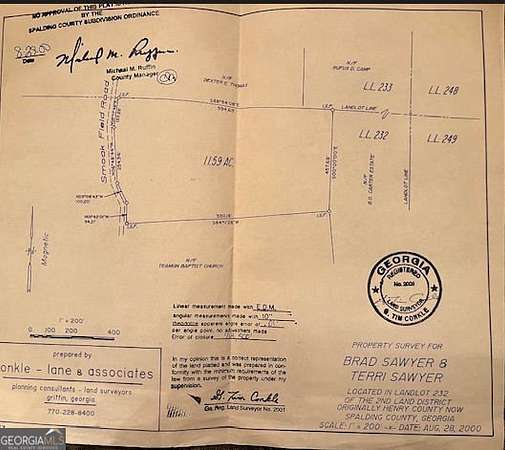 NO APPROVAL OF THIS PLAT IS
BY THE
SPALDING COUNTY SUBDIVISION ORDINANCE
8-29-00
Date
Michael M. Ruffin
Micheal M. Ruffin
County Manager
N/F
DEXTER E. THOMAS
N/F
RUFUS D. CAMP
L.L. 233
L.L. 248
LANDLOT LINE
L.L. 232
L.L. 249
Smoak Field Road
11.59 AC.
N/F
B.D. CARTER ESTATE
LANDLOT LINE
N/F
TEAMON BAPTIST CHURCH
Magnetic
1" = 200'
0 100 200 400
GEORGIA
REGISTERED
No. 2001
LAND SURVEYOR
G. TIM CONKLE
Linear measurement made with E.D.M.
angular measurement made with 10"
theodolite apparent angle error of
per angle point, no adjustments made
Error of closure
In my opinion this is a correct representation
of the land platted and was prepared in con-
formity with the minimum requirements of the
law from a survey of the property under my
supervision.
G. Tim Conkle
Ga. Reg. Land Surveyor No. 2001
PROPERTY SURVEY FOR
BRAD SAWYER &
TERRI SAWYER
LOCATED IN LANDLOT 232
OF THE 2ND LAND DISTRICT
ORIGINALLY HENRY COUNTY NOW
SPALDING COUNTY, GEORGIA
SCALE: 1" = 200' DATE: AUG, 28, 2000
prepared by
onkle - lane & associates
planning consultants - land surveyors
griffin, georgia
770-228-6400
GEORGIAMLS